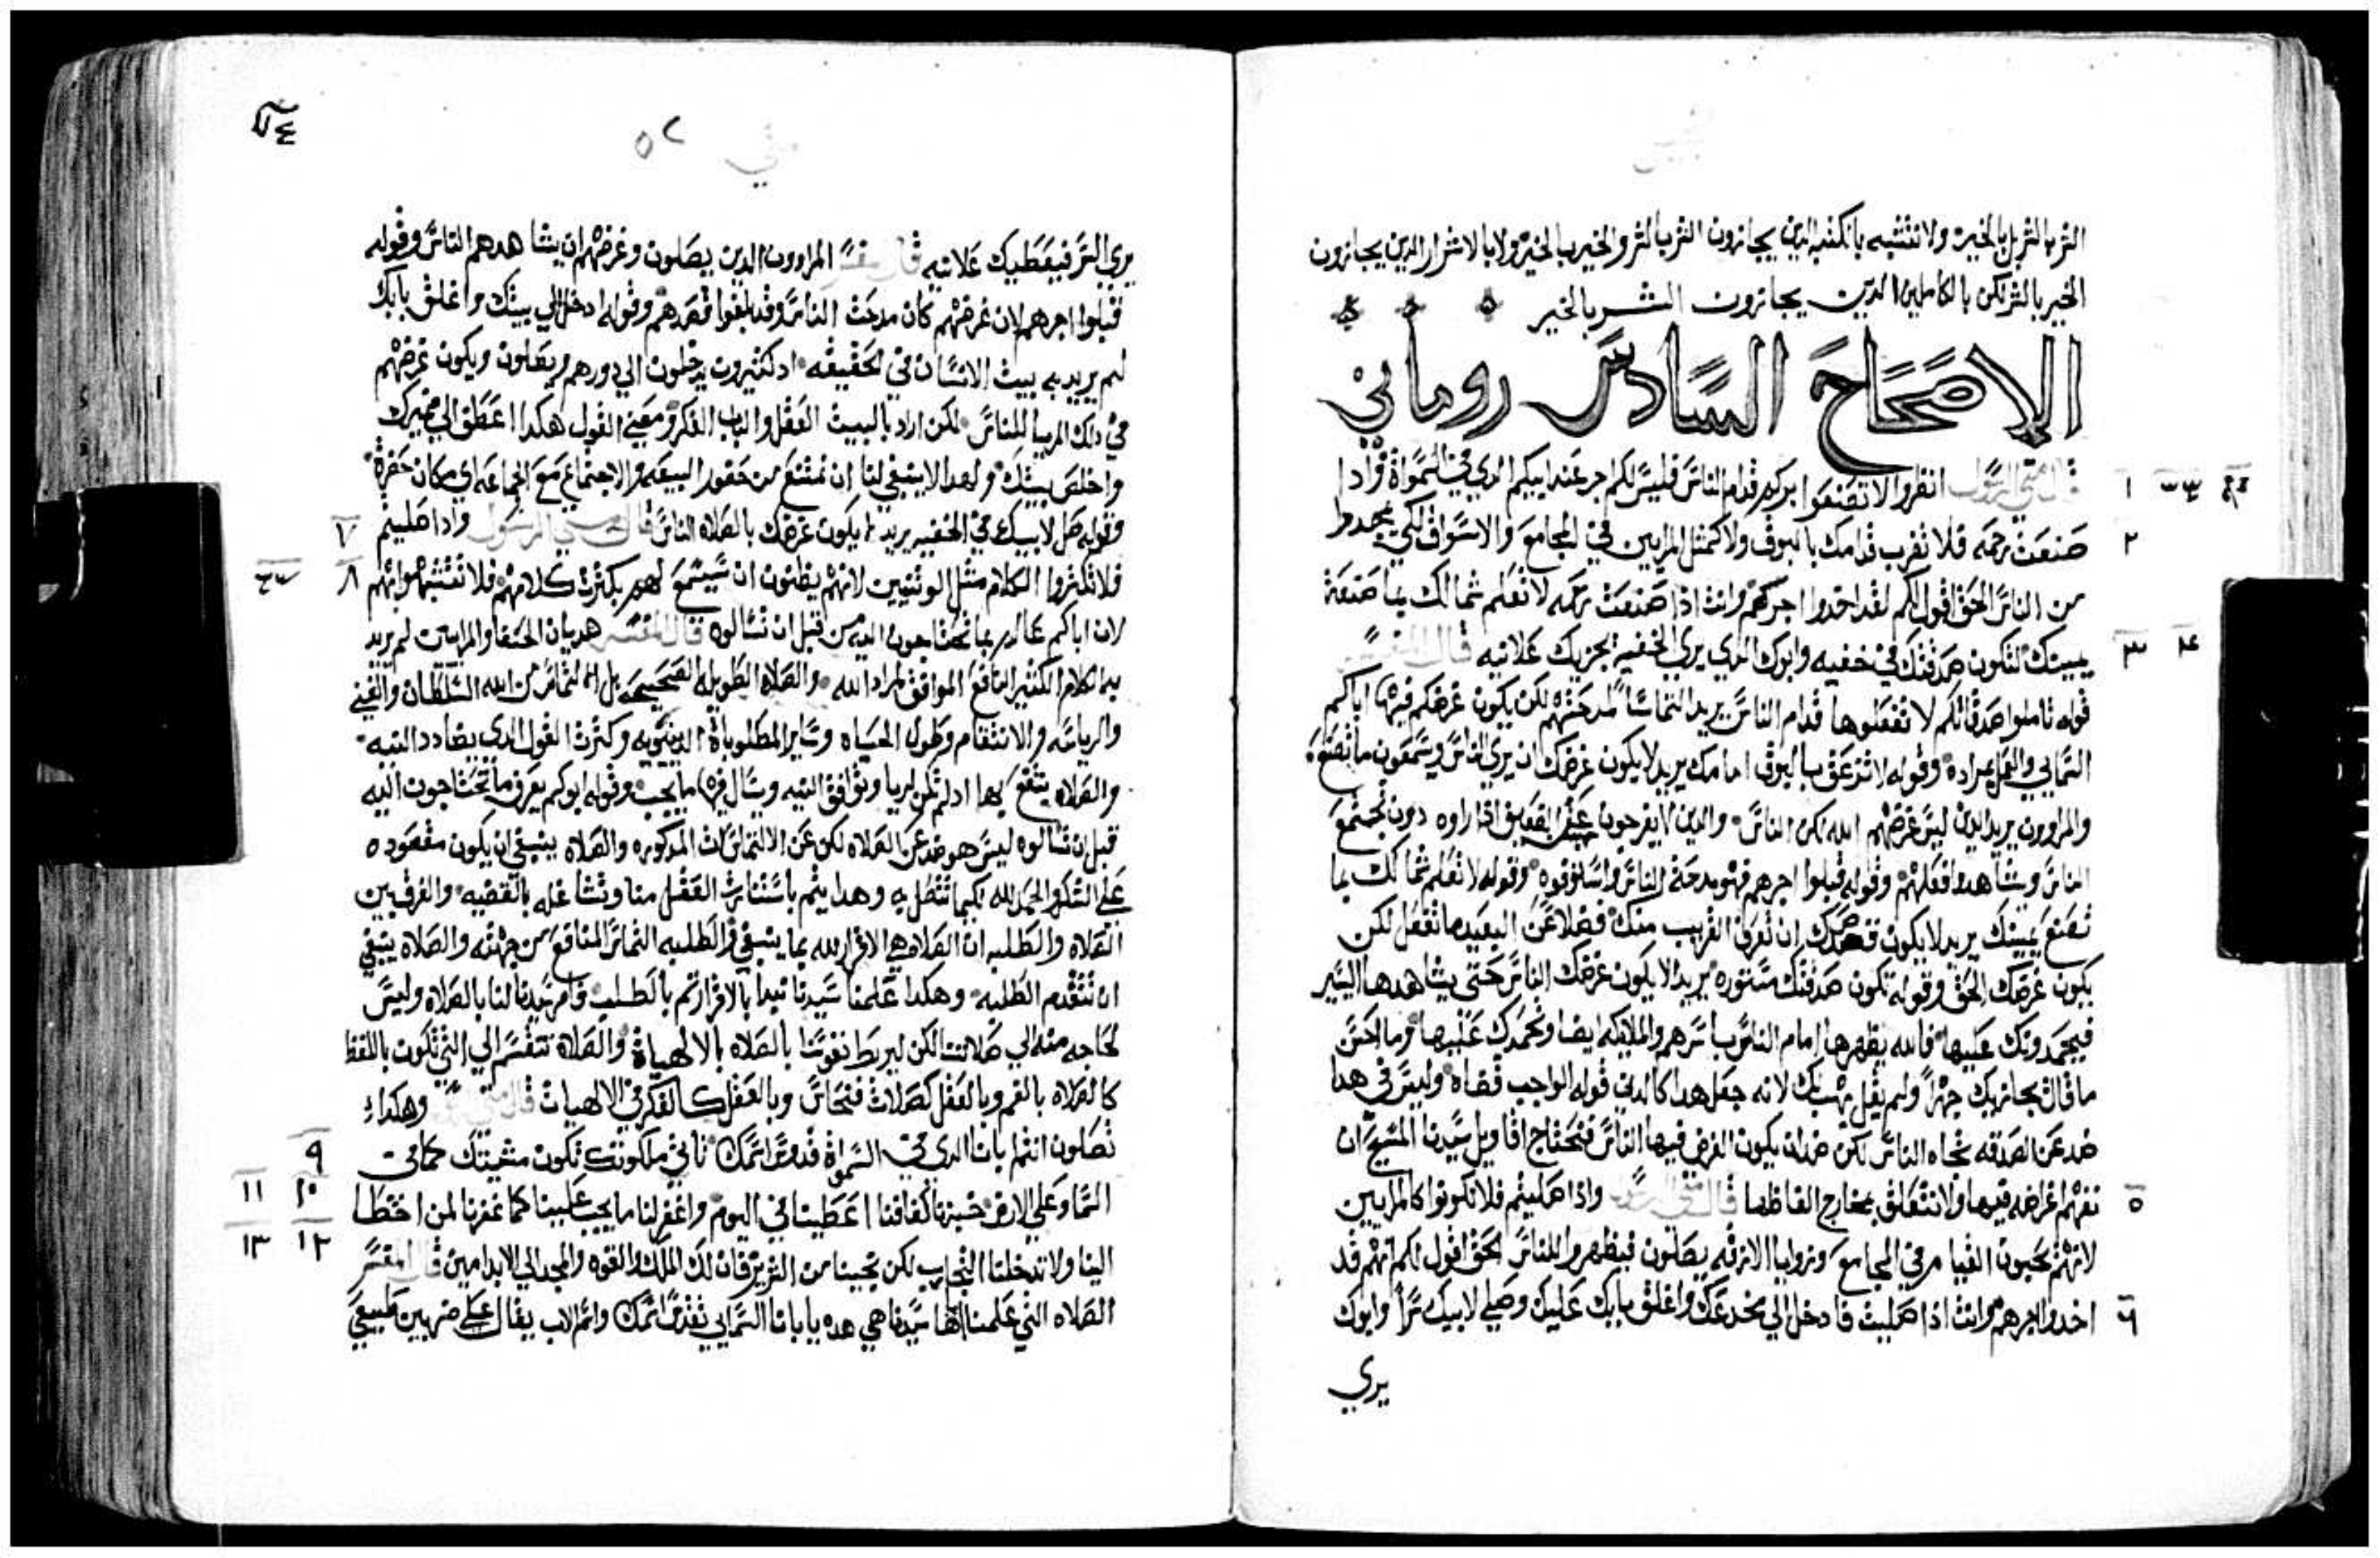 الشر بالشر بل بالخير ولا نتشبه بالكتبه الدين يجازون الشر بالشر والخير بالخير ولا بالاشرار الدين يجازون
الخير بالشر لكن بالكاملين الدين يجازون الشر بالخير
الاصحاح السادس روماني
قال متي الرسول انظروا لا تصنعوا بركم قدام الناس فليس لكم اجر عند ابيكم الدي في السموات وادا
١
صنعت رحمه فلا تضرب قدامك بالبوق ولا كمثل المرايين في المجامع والاسواق لكي يمجدوا
٢
من الناس الحق اقول لكم لقد اخدوا اجرهم وانت اذا صنعت رحمه لا تعلم شمالك بما صنعة
يمينك لتكون صدقتك في خفيه وابوك الدي يري الخفيه يجزيك علانيه قال المفسر
٣ ٤
قوله تاملوا صدقاتكم لا تفعلوها قدام الناس يريد التماسا لمدحتهم لكن يكون غرضكم فيها اباكم
السمايي والعمل بمراده وقوله لا تزعق بالبوق امامك يريد لا يكون غرضك ان يري الناس ويسمعون ما تصنع
والمراوون يريد الدين ليس غرضهم الله لكن الناس والدين لا يفرحون اذا راوه دون تجتمع
الناس ويشاهدوا فعلهم وقوله قبلوا اجرهم فهو مدحة الناس واستوفوه وقوله لا تعلم شمالك بما
تصنع يمينك يريد لا يكون قصدك ان تعرف القريب منك فضلا عن البعيد ما تفعل لكن
يكون غرضك الحق وقوله تكون صدقتك مستوره يريد لا يكون غرضك الناس حتى يشاهدها اليسير
فيحمدونك عليها فالله يظهرها امام الناس باسرهم والملايكه ايضا وتحمدك عليها وما احسن
ما قال يجازيك جهرا ولم يقل يهب لك لانه جعل هدا كالدين قوله الواجب قضاه وليس في هدا
ضد عن الصدقه تجاه الناس لكن ضد ان يكون الغرض فيها الناس فنحتاج اقاويل سيدنا المسيح ان
نفهم اغراضه فيها ولا نتعلق بمخارج الفاظها قال متي الرسول واذا صليتم فلا تكونوا كالمرايين
٥
لانهم يحبون القيام في المجامع وزوايا الازقه يصلون فيظهروا للناس الحق اقول لكم انهم قد
اخدوا اجرهم وانت اذا صليت فادخل الي مخدعك واغلق بابك عليك وصلي لابيك سرا وابوك
٦
يري
متي ٥٢
يري السر فيعطيك علانيه قال المفسر المراوون الدين يصلون وغرضهم ان يشاهدهم الناس وقوله
قبلوا اجرهم لان غرضهم كان مدحت الناس وقد بلغوا قصدهم وقوله ادخل الي بيتك واغلق بابك
لم يريد به بيت الانسان في الحقيقه اد كثيرون يدخلون الي دورهم ويصلون ويكون غرضهم
في دلك المريا للناس لكن اراد بالبيت العقل والباب الفكر ومعني القول هكدا اعطف الي ضميرك
واخلص بيتك ولهدا لا ينبغي لنا ان نمتنع من حضور البيعه والاجتماع مع الجماعه اي مكان حضرة
وقوله صل لابيك في الخفيه يريد لا يكون غرضك بالصلاه الناس قال متي الرسول وادا صليتم
٧
فلا تكثروا الكلام مثل الوثنيين لانهم يظنون ان يسمع لهم بكثرت كلامهم فلا تتشبهوا بهم
٨
لان اباكم عالم بما تحتاجون اليه من قبل ان تسالوه قال المفسر هديان الحنفا والمرايين لم يريد
به الكلام الكثير النافع الموافق لمراد الله والصلاه الطويله الصحيحه بل التماس من الله السلطان والغني
والرياسه والانتقام وطول الحياه وساير المطلوبات الدنيويه وكثرت القول الدي يضادد النيه
والصلاه ينتفع بها اد لم تكن لريا وتوافق النيه ويسال فيها ما يجب وقوله ابوكم يعرف ما تحتاجون اليه
قبل ان تسالوه ليس هو ضد عن الصلاه لكن عن الالتماسات المدكوره والصلاه ينبغي ان يكون مقصوده
علي الشكر والحمد لله وهدا يتم باستنارت العقل منا وتشاغله بالقضيه والفرق بين
الصلاه والطلبه ان الصلاه هي الاقرار لله بما ينبغي والطلبه التماس المنافع من جهته والصلاه ينبغي
ان تتقدم الطلبه وهكدا علمنا سيدنا نبدا بالاقرار تم بالطلب وامر سيدنا لنا بالصلاه وليس
لحاجه منه الي صلاتنا لكن ليربط نفوسنا بالصلاه بالالهياة والصلاه تنقسم الي التي تكون باللفظ
كالصلاه بالفم وبالعقل كصلات فنحاس وبالعقل كالفكر في الالهيات قال متي الرسول وهكداء
تصلون انتم يابانا الدي في السمواة قدوس اسمك تاتي ملكوتك تكون مشيتك كما في
٩
السما وعلي الارض خبزنا كفافنا اعطينا في اليوم واغفر لنا ما يجب علينا كما غفرنا لمن اخطا
١٠ ١١
الينا ولا تدخلنا التجارب لكن نجينا من الشرير فان لك الملك والقوه والمجد الي الابد امين قال المفسر
١٢ ١٣
الصلاه التي علمنا اياها سيدنا هي هده يابانا السمايي تقدس اسمك واسم الاب يقال علي ضربين طبيعي